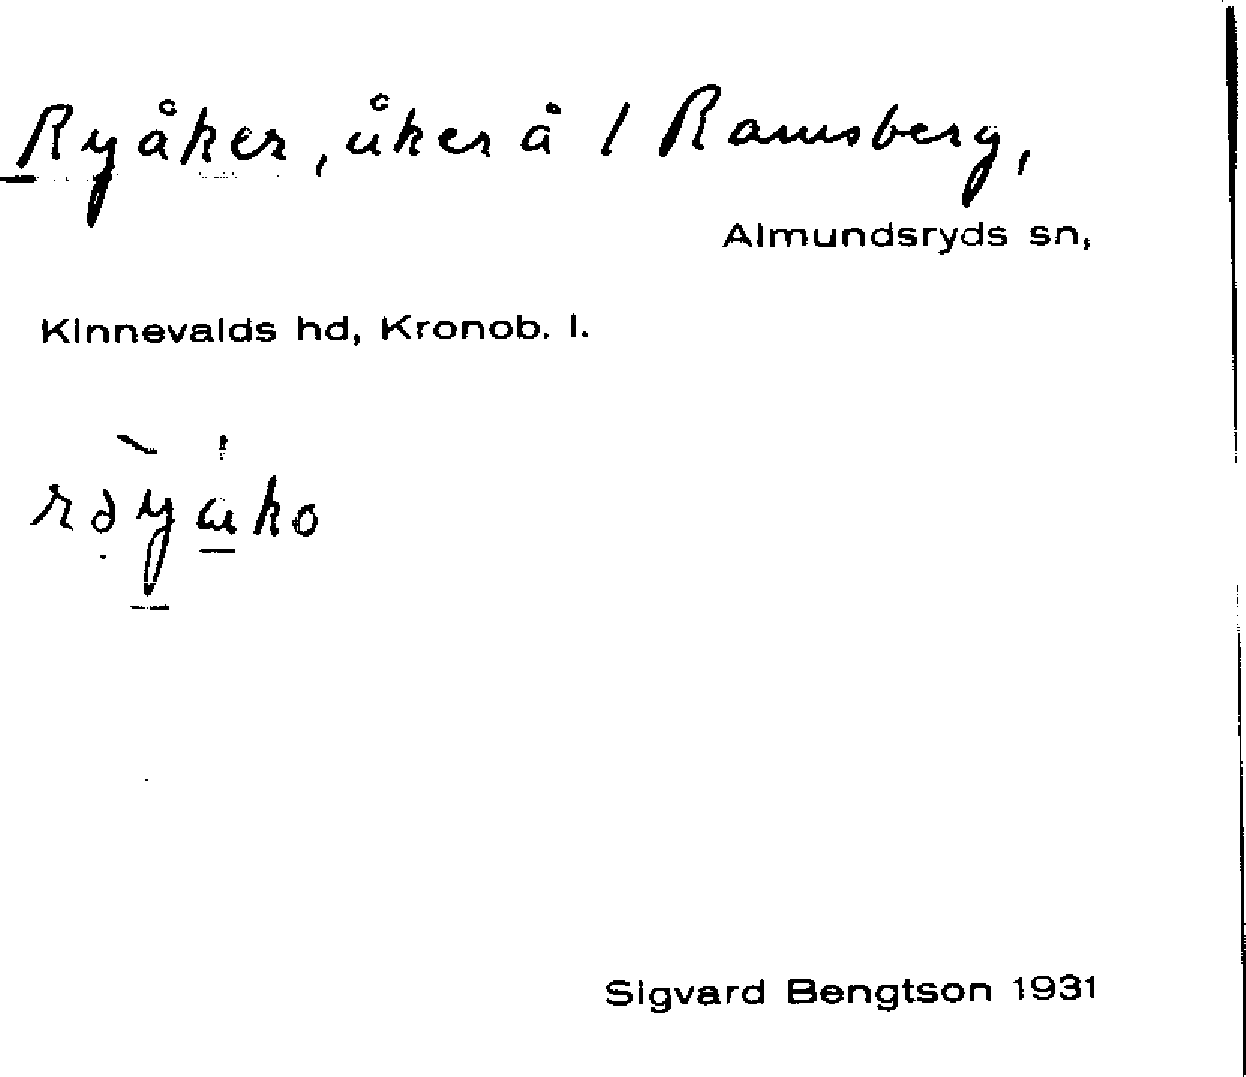 Ryåker, åker å / Ramsberg,
Almundsryds sn,
Kinnevalds hd, Kronob. l.
Sigvard Bengtson 1931